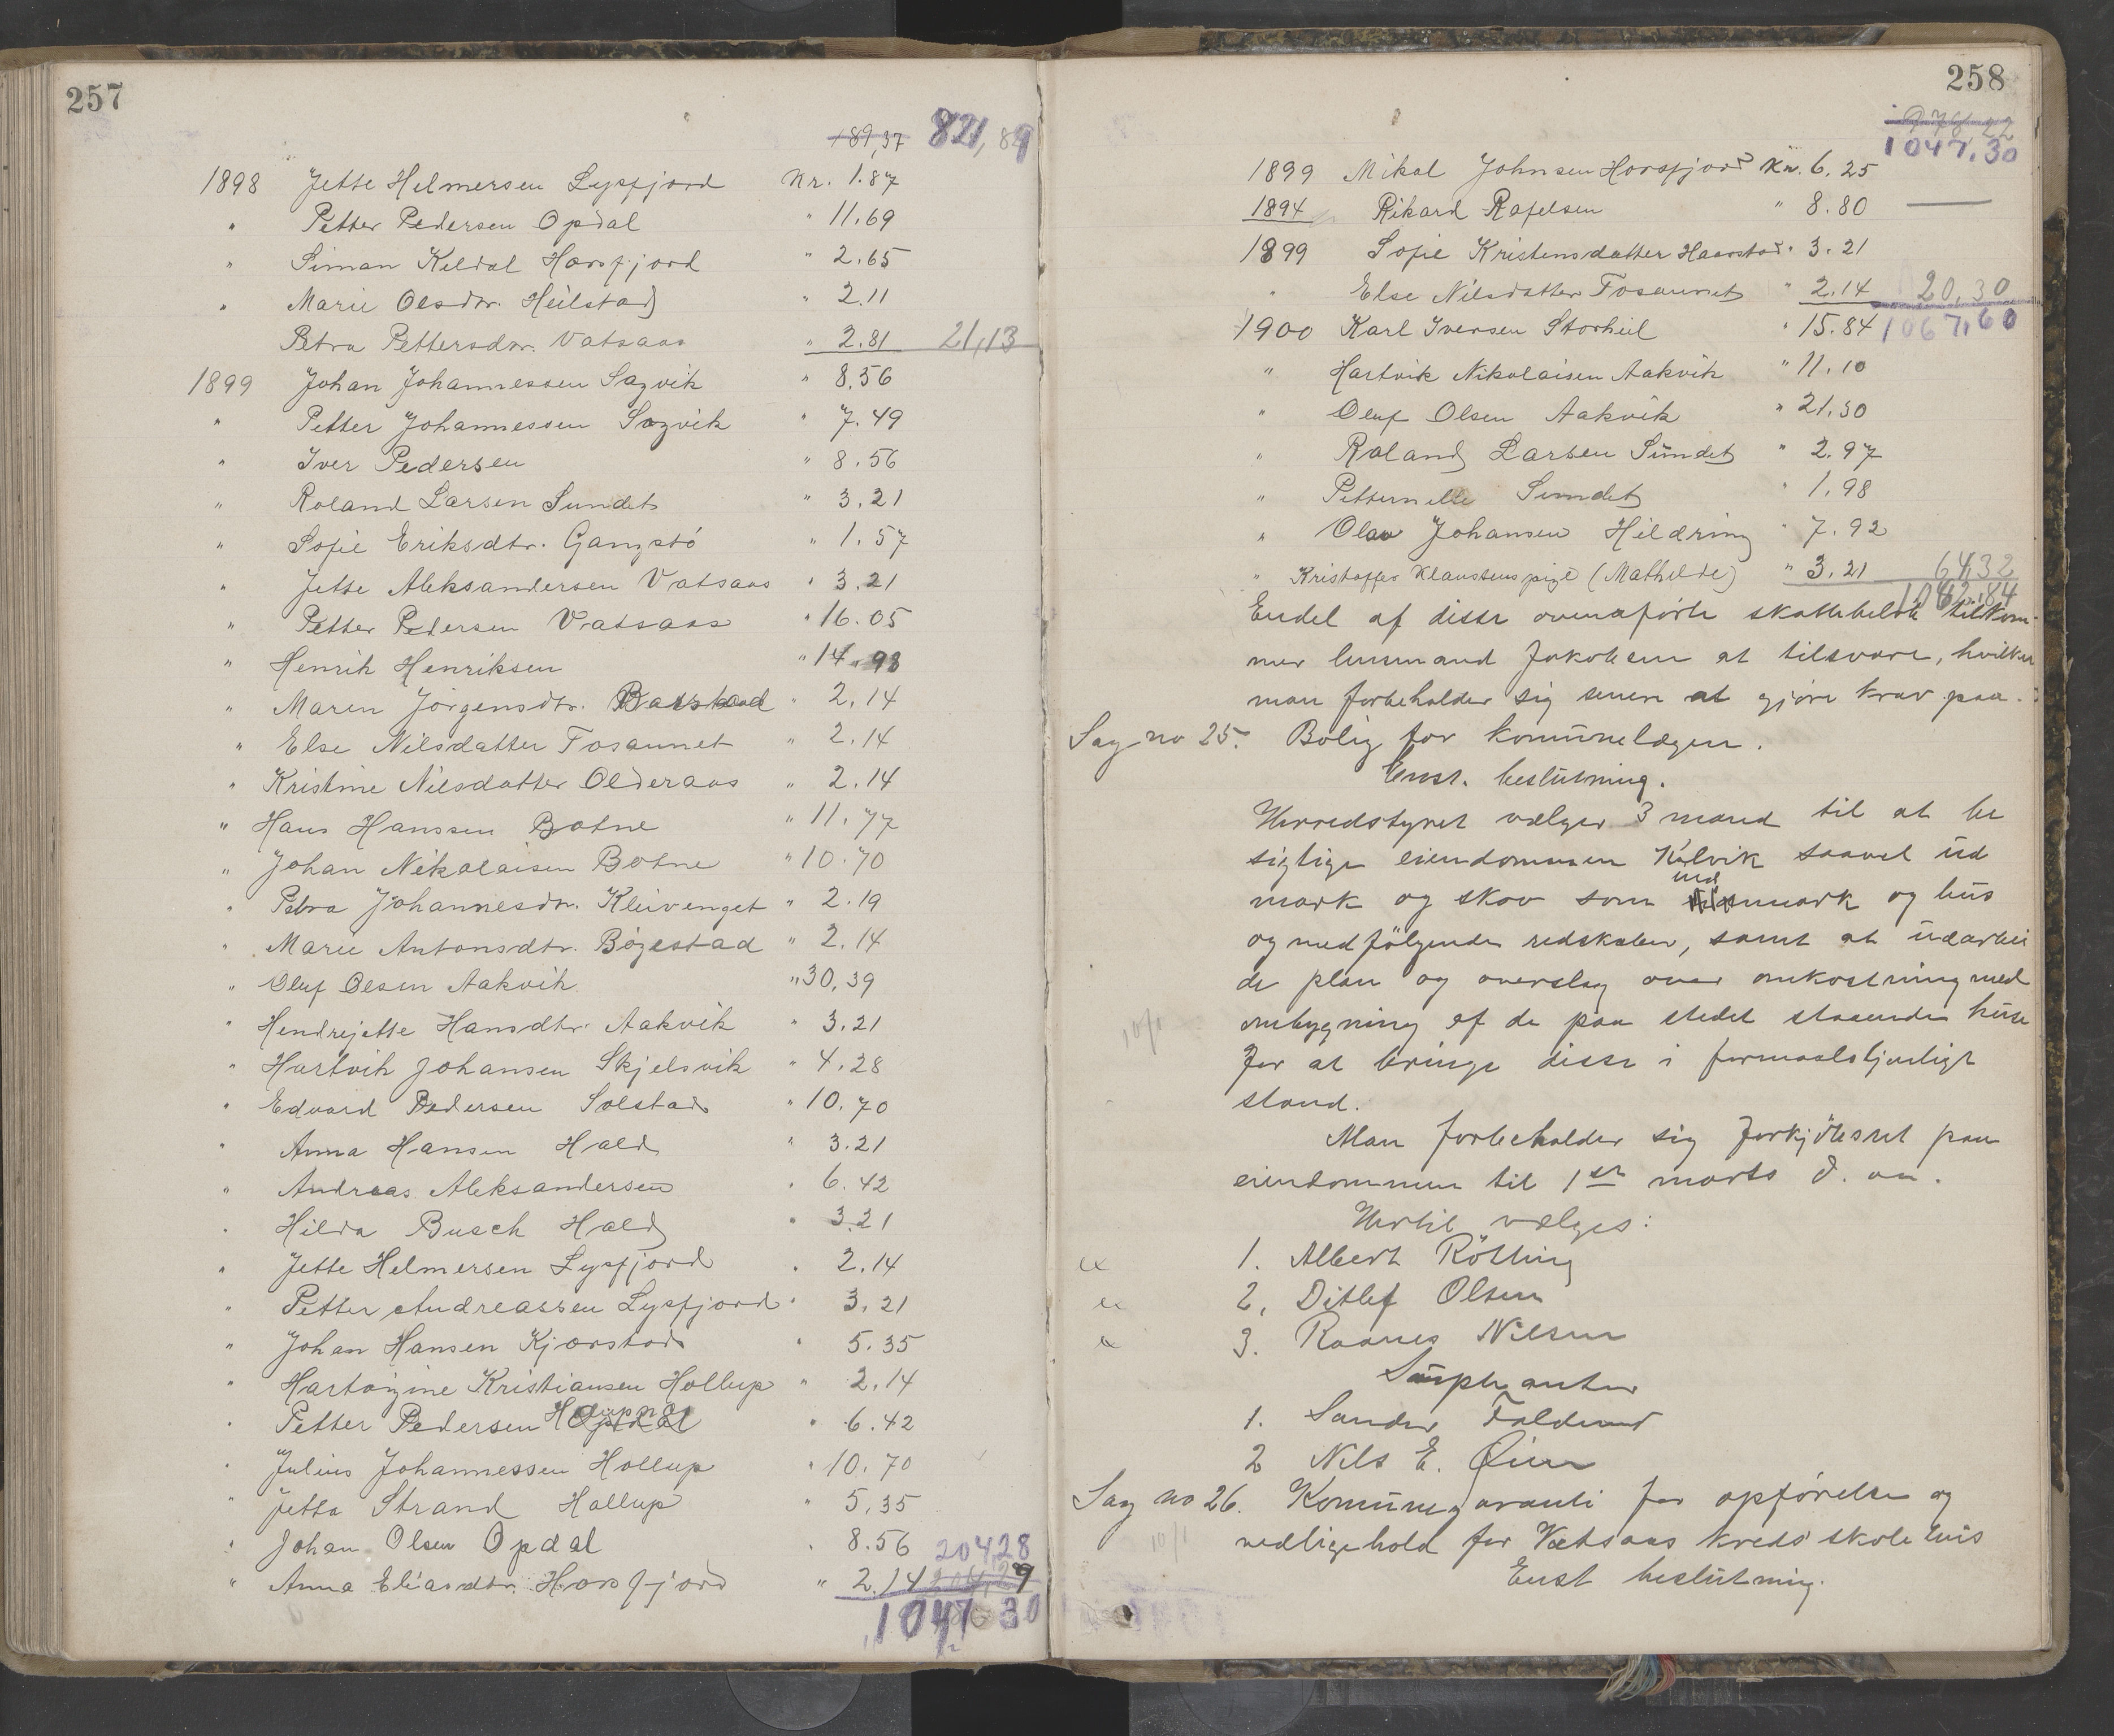 257
789,37 821,89
1898 Jette Helmersen Lysfjord Kr. 1.87
" Petter Pedersen Opdal " 11.69
" Siman Keldal Horsfjord " 2.65
" Marie Olsdtr. Heilstad " 2.11
Petra Pettersdtr. Vatsaas " 2.81 21,13
1899 Johan Johannessen Sagvik " 8.56
" Petter Johannessen Sagvik " 7.49
" Iver Pedersen " 8.56
" Roland Larsen Sundet " 3.21
" Sofie Eriksdtr. Gangstö " 1.57
" Jette Aleksandersen Vatsaas " 3.21
" Petter Pedersen Vatsaas " 16.05
" Henrik Henriksen " 14.98
" Maren Jörgensdtr. Baustad " 2.14
" Else Nilsdatter Tosaunet " 2.14
" Kristine Nilsdatter Olderaas " 2.14
" Hans Hanssen Botne " 11.77
" Johan Nikolaisen Botne " 10.70
" Petra Johannesdtr. Kleivenget " 2.19
" Marie Antonsdtr. Bögestad " 2.14
" Oluf Olsen Aakvik " 30.39
" Hendrejette Hansdtr. Aakvik " 3.21
" Hartvik Johansen Skjelsvik " 4.28
" Edvard Pedersen Solstad " 10.70
" Anna Hansen Hald " 3.21
" Andreas Aleksandersen " 6.42
" Hilda Busch Hald " 3.21
" Jette Helmersen Lysfjord " 2.14
" Petter Andreassen Lysfjord " 3.21
" Johan Hansen Kjærstad " 5.35
" Hartvigine Kristiansen Hollup " 2.14
" Petter Pedersen Opdal " 6.42
" Julius Johannessen Hollup " 10.70
" Jetta Strand Hollup " 5.35
" Johan Olsen Opdal " 8.56 204,28
" Anna Eliasdtr. Horsfjord " 2.14
1047 30
258
978,22
1047,30
1899 Mikal Johnsen Horsfjord Kr. 6.25
1894 Rikard Rafelsen " 8.80
1899 Sofie Kristensdatter Haarstad " 3.21
" Else Nilsdatter Tosaunet " 2.14 20,30
1900 Karl Iversen Storheil " 15.84 1067,60
" Hartvik Nikolaisen Aakvik " 11.10
" Oluf Olsen Aakvik " 21.30
" Roland Larsen Sundet " 2.97
" Petternelle Sundet " 1.98
" Olav Johansen Hildring " 7.92
" Kristoffer Klaussens pige (Mathilde) " 3.21 64,32
Endel af disse ovenaförte skattebelöb tilkom-
mer lensmand Jakobsen at tilsvare, hvilket
man forbeholder sig senere at gjöre krav paa.
Sag no 25. Bolig for komunelægen.
Enst. beslutning.
Herredstyret vælger 3 mænd til at be
sigtige eiendommen Kelvik saavel ud
mark og skov som indmark og hus
og medfölgende redskaber, samt at udarbei
de plan og overslag over omkostning med
ombygning af de paa stedet staaende huse
for at bringe disse i formaalstjenligt
stand.
10/1
Man forbeholder sig forkjöbsret paa
eiendommen til 1ste marts d. aa.
Hertil vælges:
1. Albert Rölling
2. Ditlef Olsen
3. Raanes Nilsen
Suppleanter
1. Sander Foldmo
2 Nils E. Öien
Sag no 26. Komunegaranti for opförelse og
10/1 vedligehold for Vatsaas kreds skolehus
Enst beslutning.